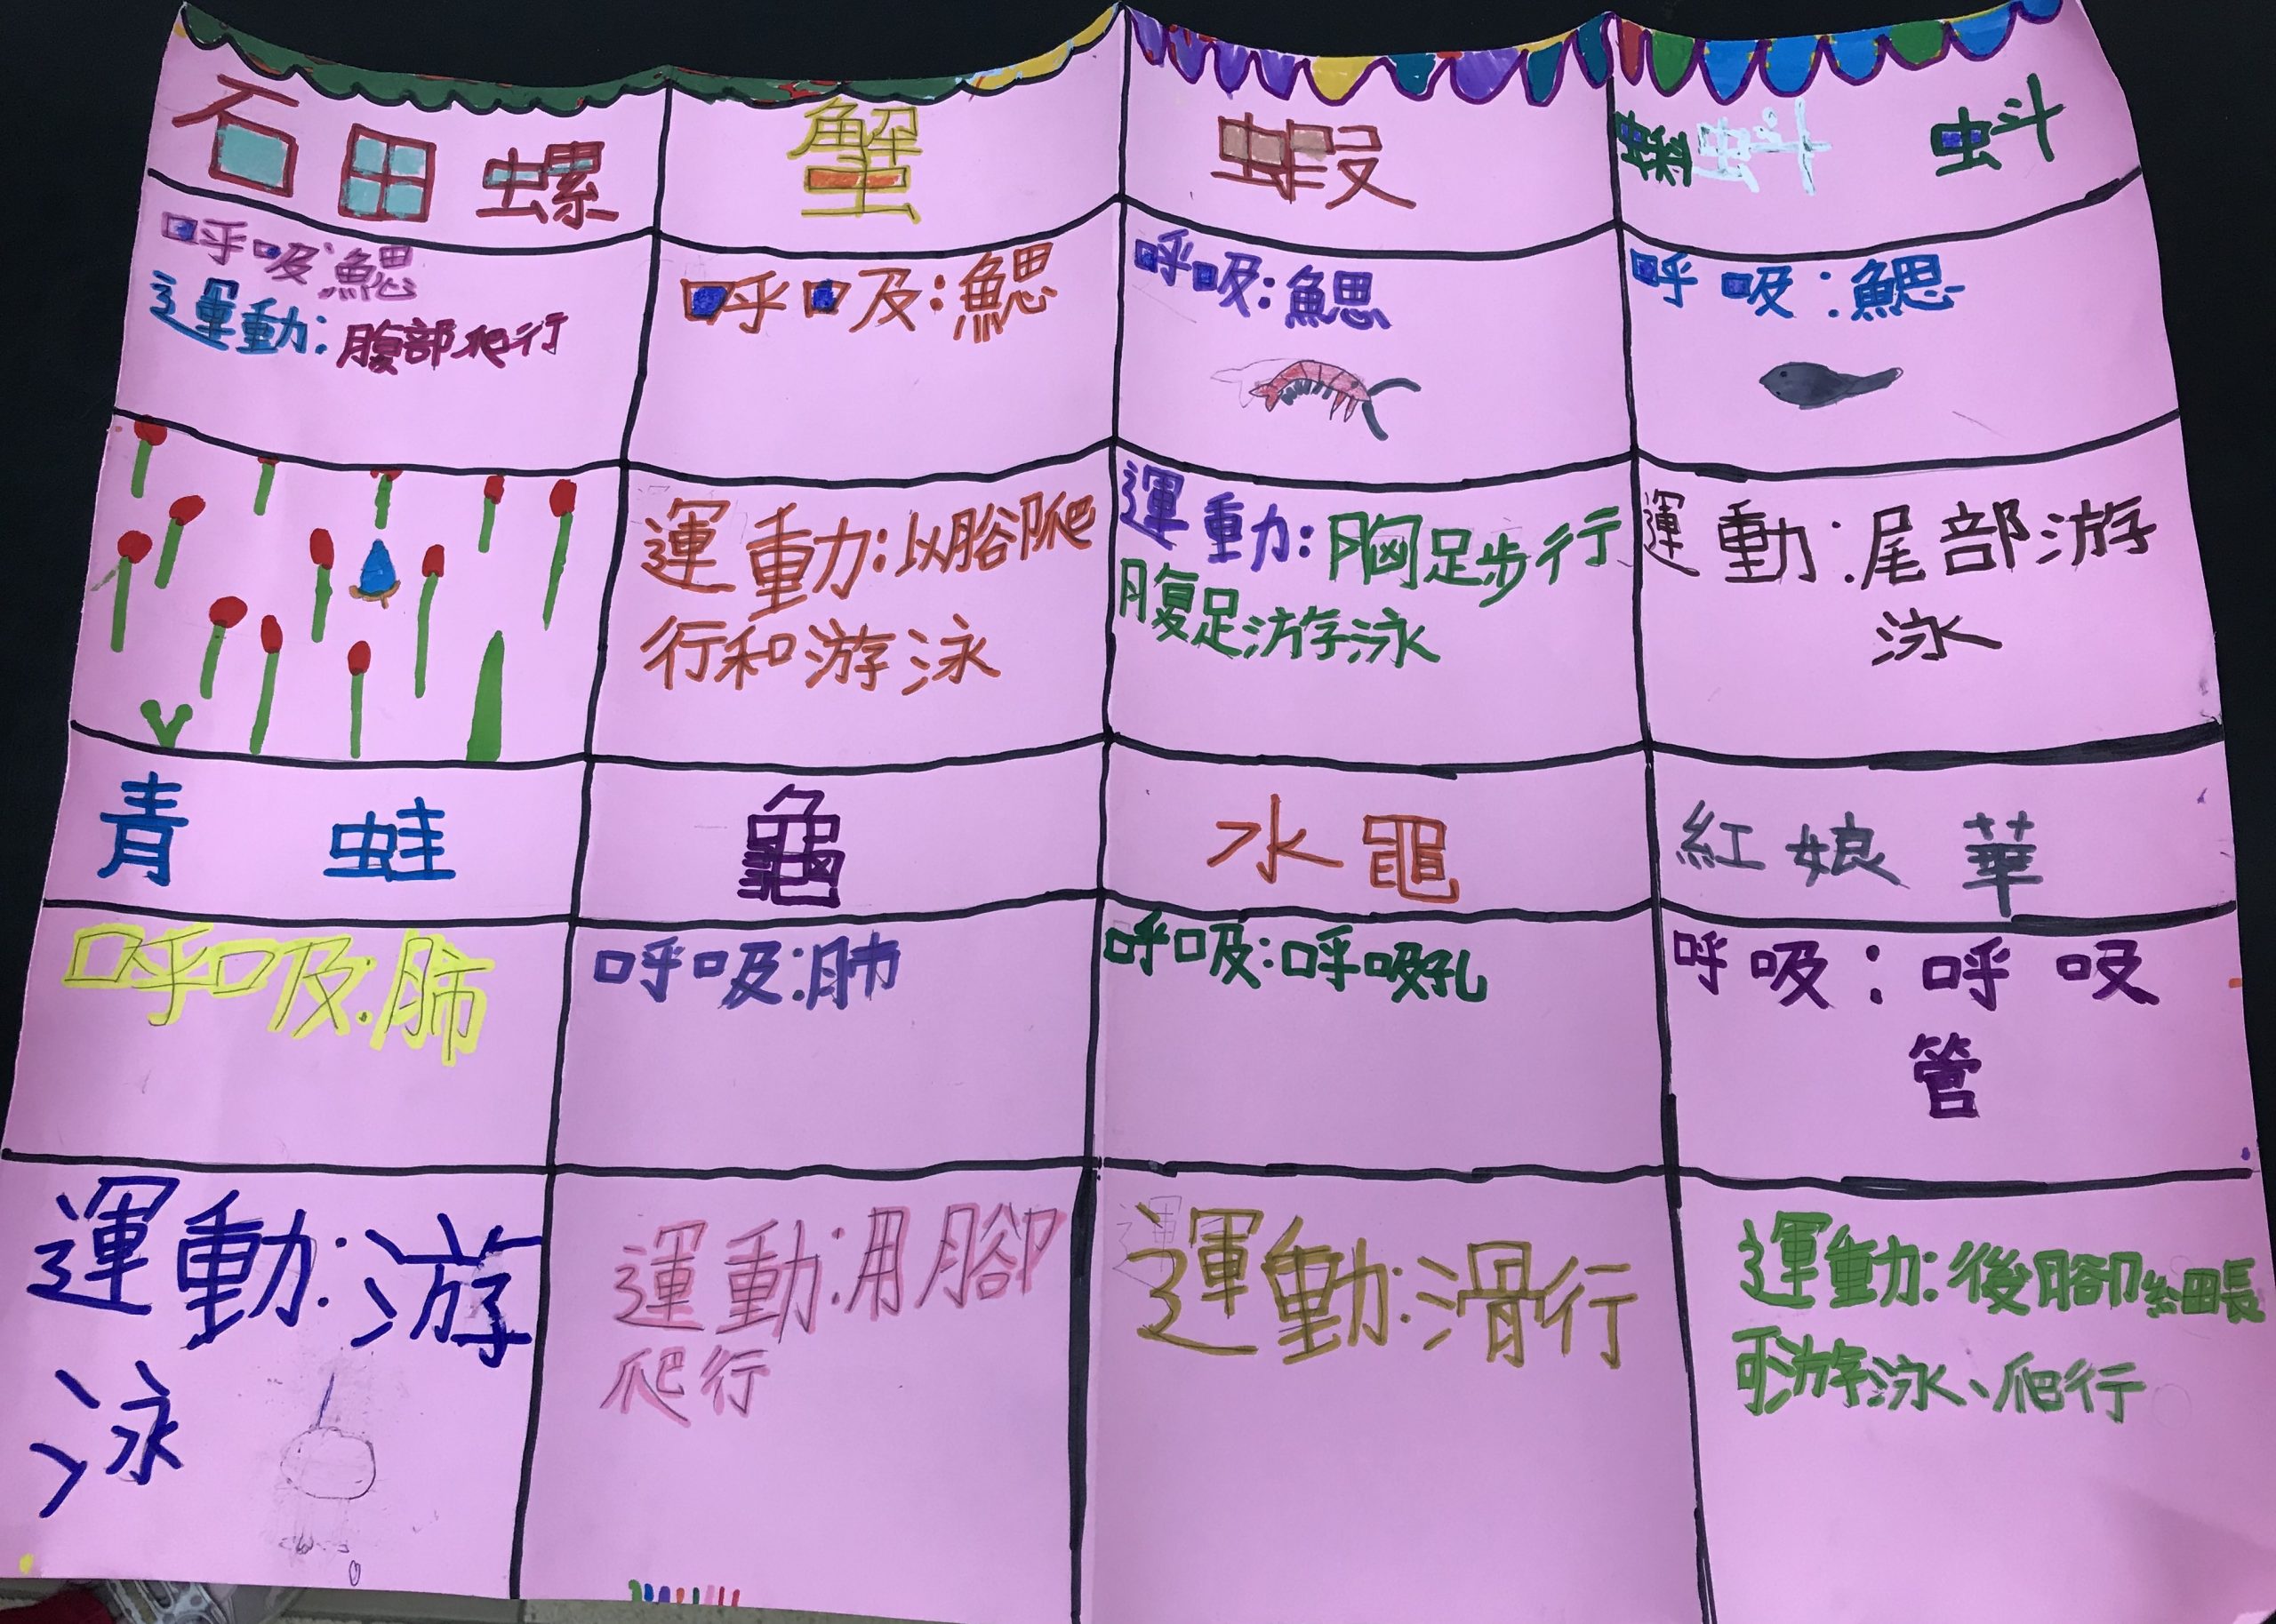 石田螺
蟹
蝦
蝌蚪
呼吸鰓
運動:腹部爬行
呼吸:鰓
呼吸:鰓
呼吸:鰓
運動:以腳爬
行和游泳
運動:胸足步行
腹足游泳
運動:尾部游
泳
青蛙
龜
水黽
紅娘華
呼吸:肺
呼吸:肺
呼吸:呼吸孔
呼吸:呼吸
管
運動:游
泳
運動:用腳
爬行
運動:滑行
運動:後腳細長
可游泳、爬行